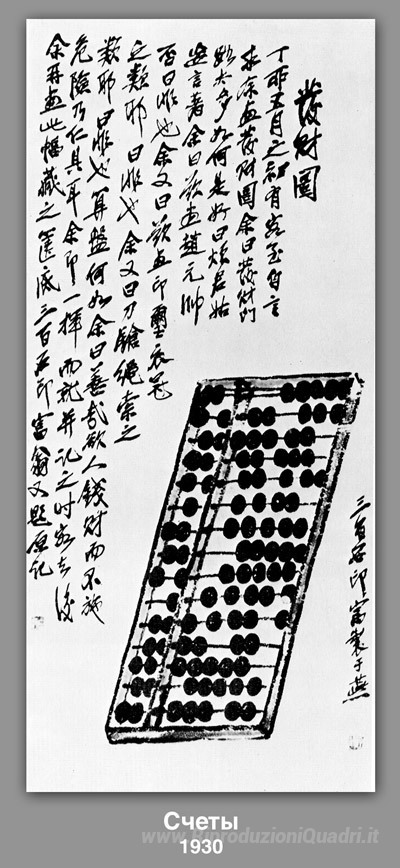 發財圖
丁卯五月之初有客至自言
求余畫發財圖余曰發財門
路太多如何是好曰煩君姑
妄言者余曰欲畫趙元帥
否曰非也余又曰欲畫印璽衣冠
之類耶曰非也余又曰刀鎗繩索之
類耶曰非也算盤何如余曰善哉欲人錢財而不施
危險乃仁具耳余即一揮而就并記之時客去後
余再畫此幅藏之篋底三百石印富翁又題原記
三百石印富製于燕
Счеты
1930
www.RiproduzioniQuadri.it